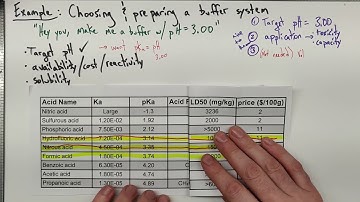 Example: Choosing & preparing a buffer system
"Hey you, make me a buffer w/ pH = 3.00"
① Target pH = 3.00
② application → toxicity
capacity
③ (Not needed) Vol
• Target pH ✓ → want pKa ≈ pH
3.00
• availability/cost/reactivity
• solubility
Acid Name Ka pKa Acid F LD50 (mg/kg) price ($/100g)
Nitric acid Large -1.3 3236 2
Sulfurous acid 1.20E-02 1.92 2000 2
Phosphoric acid 7.50E-03 2.12 >5000 11
Hydrofluoric acid 7.20E-04 3.14
Nitrous acid
Formic acid 1.80E-04 3.74
Benzoic acid 6.30E-05 4.20
Acetic acid 1.80E-05 4.74
Propanoic acid 1.30E-05 4.89